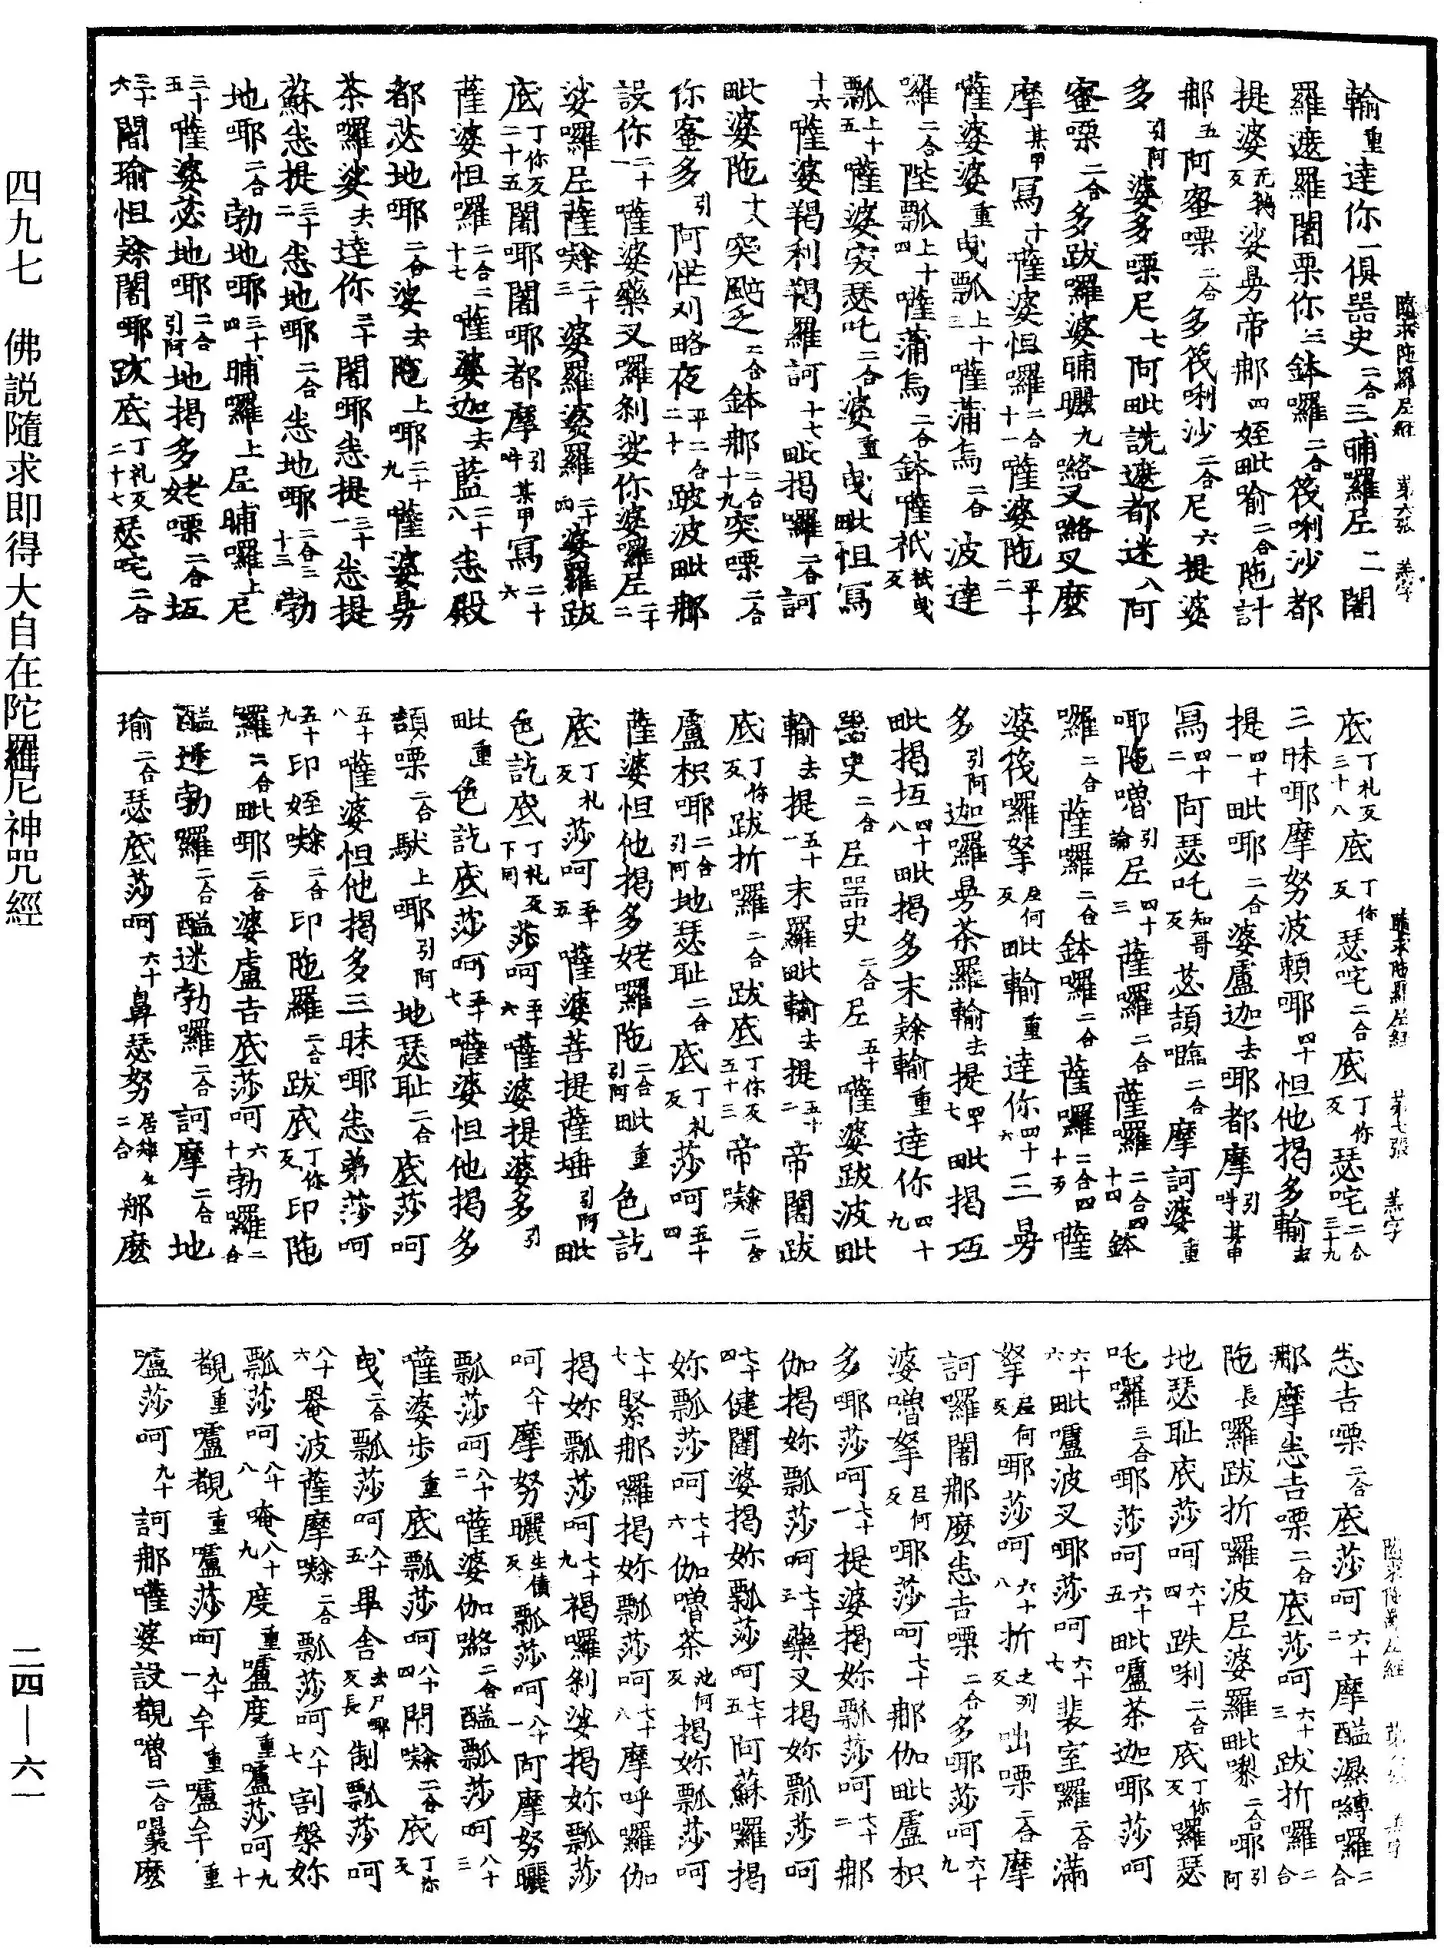 輸重達你一俱噐史二合三晡羅𡰱二闍
羅遮羅闍栗你三鉢羅二合筏唎沙都
提婆无鵝反娑㝵帝那四姪毗喻二合陁計
那五阿蜜㗚二合多筏唎沙二合尼六提婆
多引阿婆多㗚尼七阿毗詵遮都迷八阿
蜜㗚二合多跋羅婆晡曬九𠸪叉𠸪叉麼
摩某甲寫十薩婆怛囉二合十一薩婆陁平十二
薩婆婆重曳瓢上十三薩蒲烏二合波達
囉二合陛瓢上十四薩蒲烏二合鉢薩祇栻曳反
瓢上十五薩婆突瑟吒二合婆重曳毗怛寫
十六薩婆羯利羯羅訶十七毗揭囉二合訶
毗婆陁十八突𩗗乏二合鉢那二合十九突㗚二合
你蜜多引阿恾刈略夜平二合二十跛波毗那
設你二十一薩婆藥叉囉剎娑你婆囉𡰱二十二
娑囉𡰱薩𡃶二十三婆羅婆羅二十四婆羅跋
底丁你反二十五闍耶闍耶都摩引吽某甲寫二十六
薩婆怛囉二合二十七薩婆迦去藍二十八悉殿
都苾地耶二合婆去陁上耶二十九薩婆㝵
茶囉娑去達你三十闍耶悉提三十一悉提
蘇悉提三十二悉地耶二合悉地耶二合三十三勃
地耶二合勃地耶三十四晡囉上𡰱晡囉上尼
三十五薩婆苾地耶二合引阿地揭多姥㗚二合坻
三十六闍瑜怛𡃶闍耶跋底丁礼反三十七瑟吒二合
底丁礼反三十八底丁你反瑟咤二合底丁你反瑟咤二合三十九
三昧耶摩努波頼耶四十怛他揭多輸去
提四十一毗耶二合婆盧迦去耶都摩引吽某甲
寫四十二阿瑟吒知哥反苾頡㘑二合摩訶婆重
耶陁嚕引論𡰱四十三薩囉二合薩囉二合四十四鉢
囉二合薩囉二合鉢囉二合薩囉二合四十五薩
婆筏囉拏𡰱何反毗輸重達你四十六三㝵
多引阿迦囉㝵茶羅輸去提四十七毗揭坻
毗揭坻四十八毗揭多末𡃶輸重達你四十九
噐史二合𡰱噐史二合𡰱五十薩婆跋波毗
輸去提五十一末羅毗輸去提五十二帝闍跋
底丁你反跋折囉二合跋底丁你反五十三帝𡃶二合
盧枳耶二合引阿地瑟耻二合底丁礼反莎呵五十四
薩婆怛他揭多姥囉陁二合引阿毗重色訖
底丁礼反莎呵五十五薩婆菩提薩埵引阿毗
色訖底丁礼反下同莎呵五十六薩婆提婆多引
毗重色訖底莎呵五十七薩婆怛他揭多
頡㗚二合馱上耶引阿地瑟耻二合底莎呵
五十八薩婆怛他揭多三昧耶悉弟莎呵
五十九印姪𡃶二合印陁羅二合跋底丁你反印陁
囉二合毗耶二合婆盧吉底莎呵六十勃囉二合
醯迷勃囉二合醯迷勃囉二合訶摩二合地
瑜二合瑟底莎呵六十鼻瑟努居雉反二合那麼
悉吉㗚二合底莎呵六十二摩醯濕縛囉二合
那摩悉吉㗚二合底莎呵六十三跋折囉二合
陁長囉跋折囉波𡰱婆羅毗𠼝二合耶引阿
地瑟耻底莎呵六十四跌唎二合底丁你反囉瑟
吒囉三合耶莎呵六十五毗嚧茶迦耶莎呵
六十六毗嚧波叉耶莎呵六十七裴室囉二合滿
拏𡰱何反耶莎呵六十八折之列反咄㗚二合摩
訶囉闍那麼悉吉㗚二合多耶莎呵六十九
婆嚕拏𡰱何反耶莎呵七十那伽毗盧枳
多耶莎呵七十一提婆揭妳瓢莎呵七十二那
伽揭妳瓢莎呵七十三藥叉揭妳瓢莎呵
七十四健闥婆揭妳瓢莎呵七十五阿蘇羅揭
妳瓢莎呵七十六伽嚕茶池何反揭妳瓢莎呵
七十七緊那囉揭妳瓢莎呵七十八摩呼囉伽
揭妳瓢莎呵七十九褐囉剎娑揭妳瓢莎
呵八十摩努曬生債反瓢莎呵八十一阿摩努曬
瓢莎呵八十二薩婆伽𠸪二合醯瓢莎呵八十三
薩婆步重底瓢莎呵八十四閇𡃶二合底丁你反
曳二合瓢莎呵八十五畢舍去尸耶反長制瓢莎呵
八十六㝵波薩摩𡃶二合瓢莎呵八十七割槃妳
瓢莎呵八十八唵八十九度重嚧度重嚧莎呵九十
覩重嚧覩重嚧莎呵九十一牟重嚧牟重
嚧莎呵九十訶那薩婆設覩嚕二合曩麼
隨求陁羅𡰱經 第六張 羔字
隨求陁羅𡰱經 第七張 羔字
隨求陁羅𡰱經 第八張 羔字
四九七 佛説隨求即得大自在陀羅尼神咒經
二四—六一